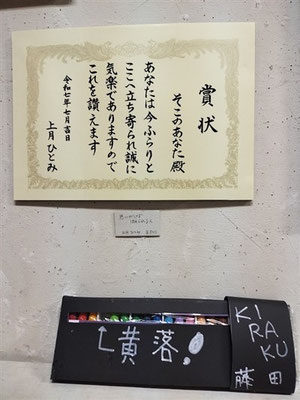 賞状
そこのあなた殿
あなたは今ふらりと
ここへ立ち寄られ誠に
気楽でありますので
これを讃えます
令和七年七月吉日
上月ひとみ
黄落!
KI
RAKU
藤田